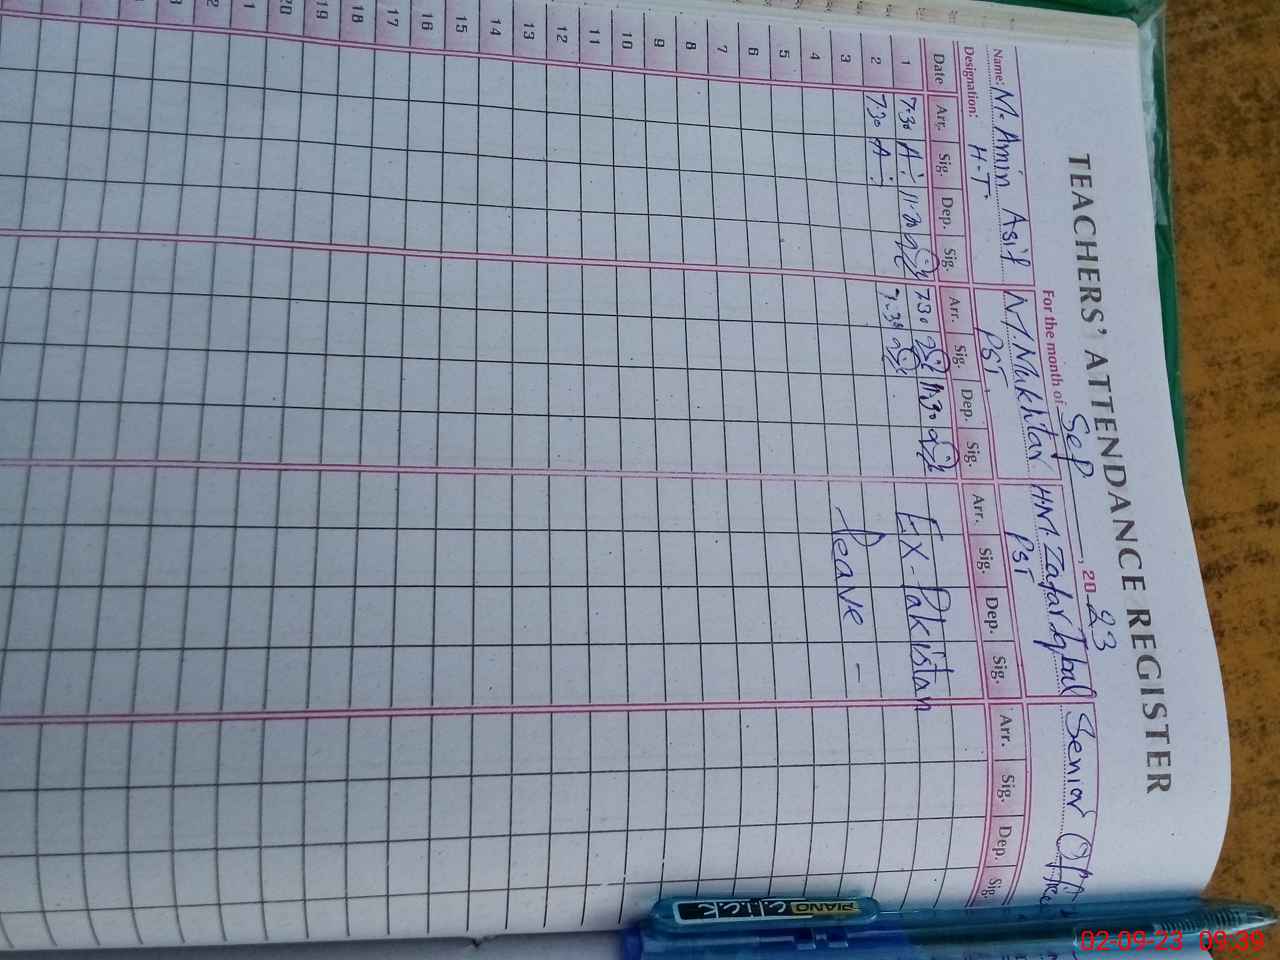 TEACHERS' ATTENDANCE REGISTER
For the month of Sep, 2023
Name: M. Amin Asif M. Mukhtar H.M Zafar Iqbal Senior
Designation: H-T. PST. PST
Date Arr. Sig. Dep. Sig. Arr. Sig. Dep. Sig. Arr. Sig. Dep. Sig. Arr. Sig. Dep. Sig.
1 7-30 A. 11-30 730 11-30 EX-Pakistan
2 7-30 A. 7-30 leave -
3
4
5
6
7
8
9
10
11
12
13
14
15
16
17
18
19
20
PIANO
CLICK
02-09-23 09:39